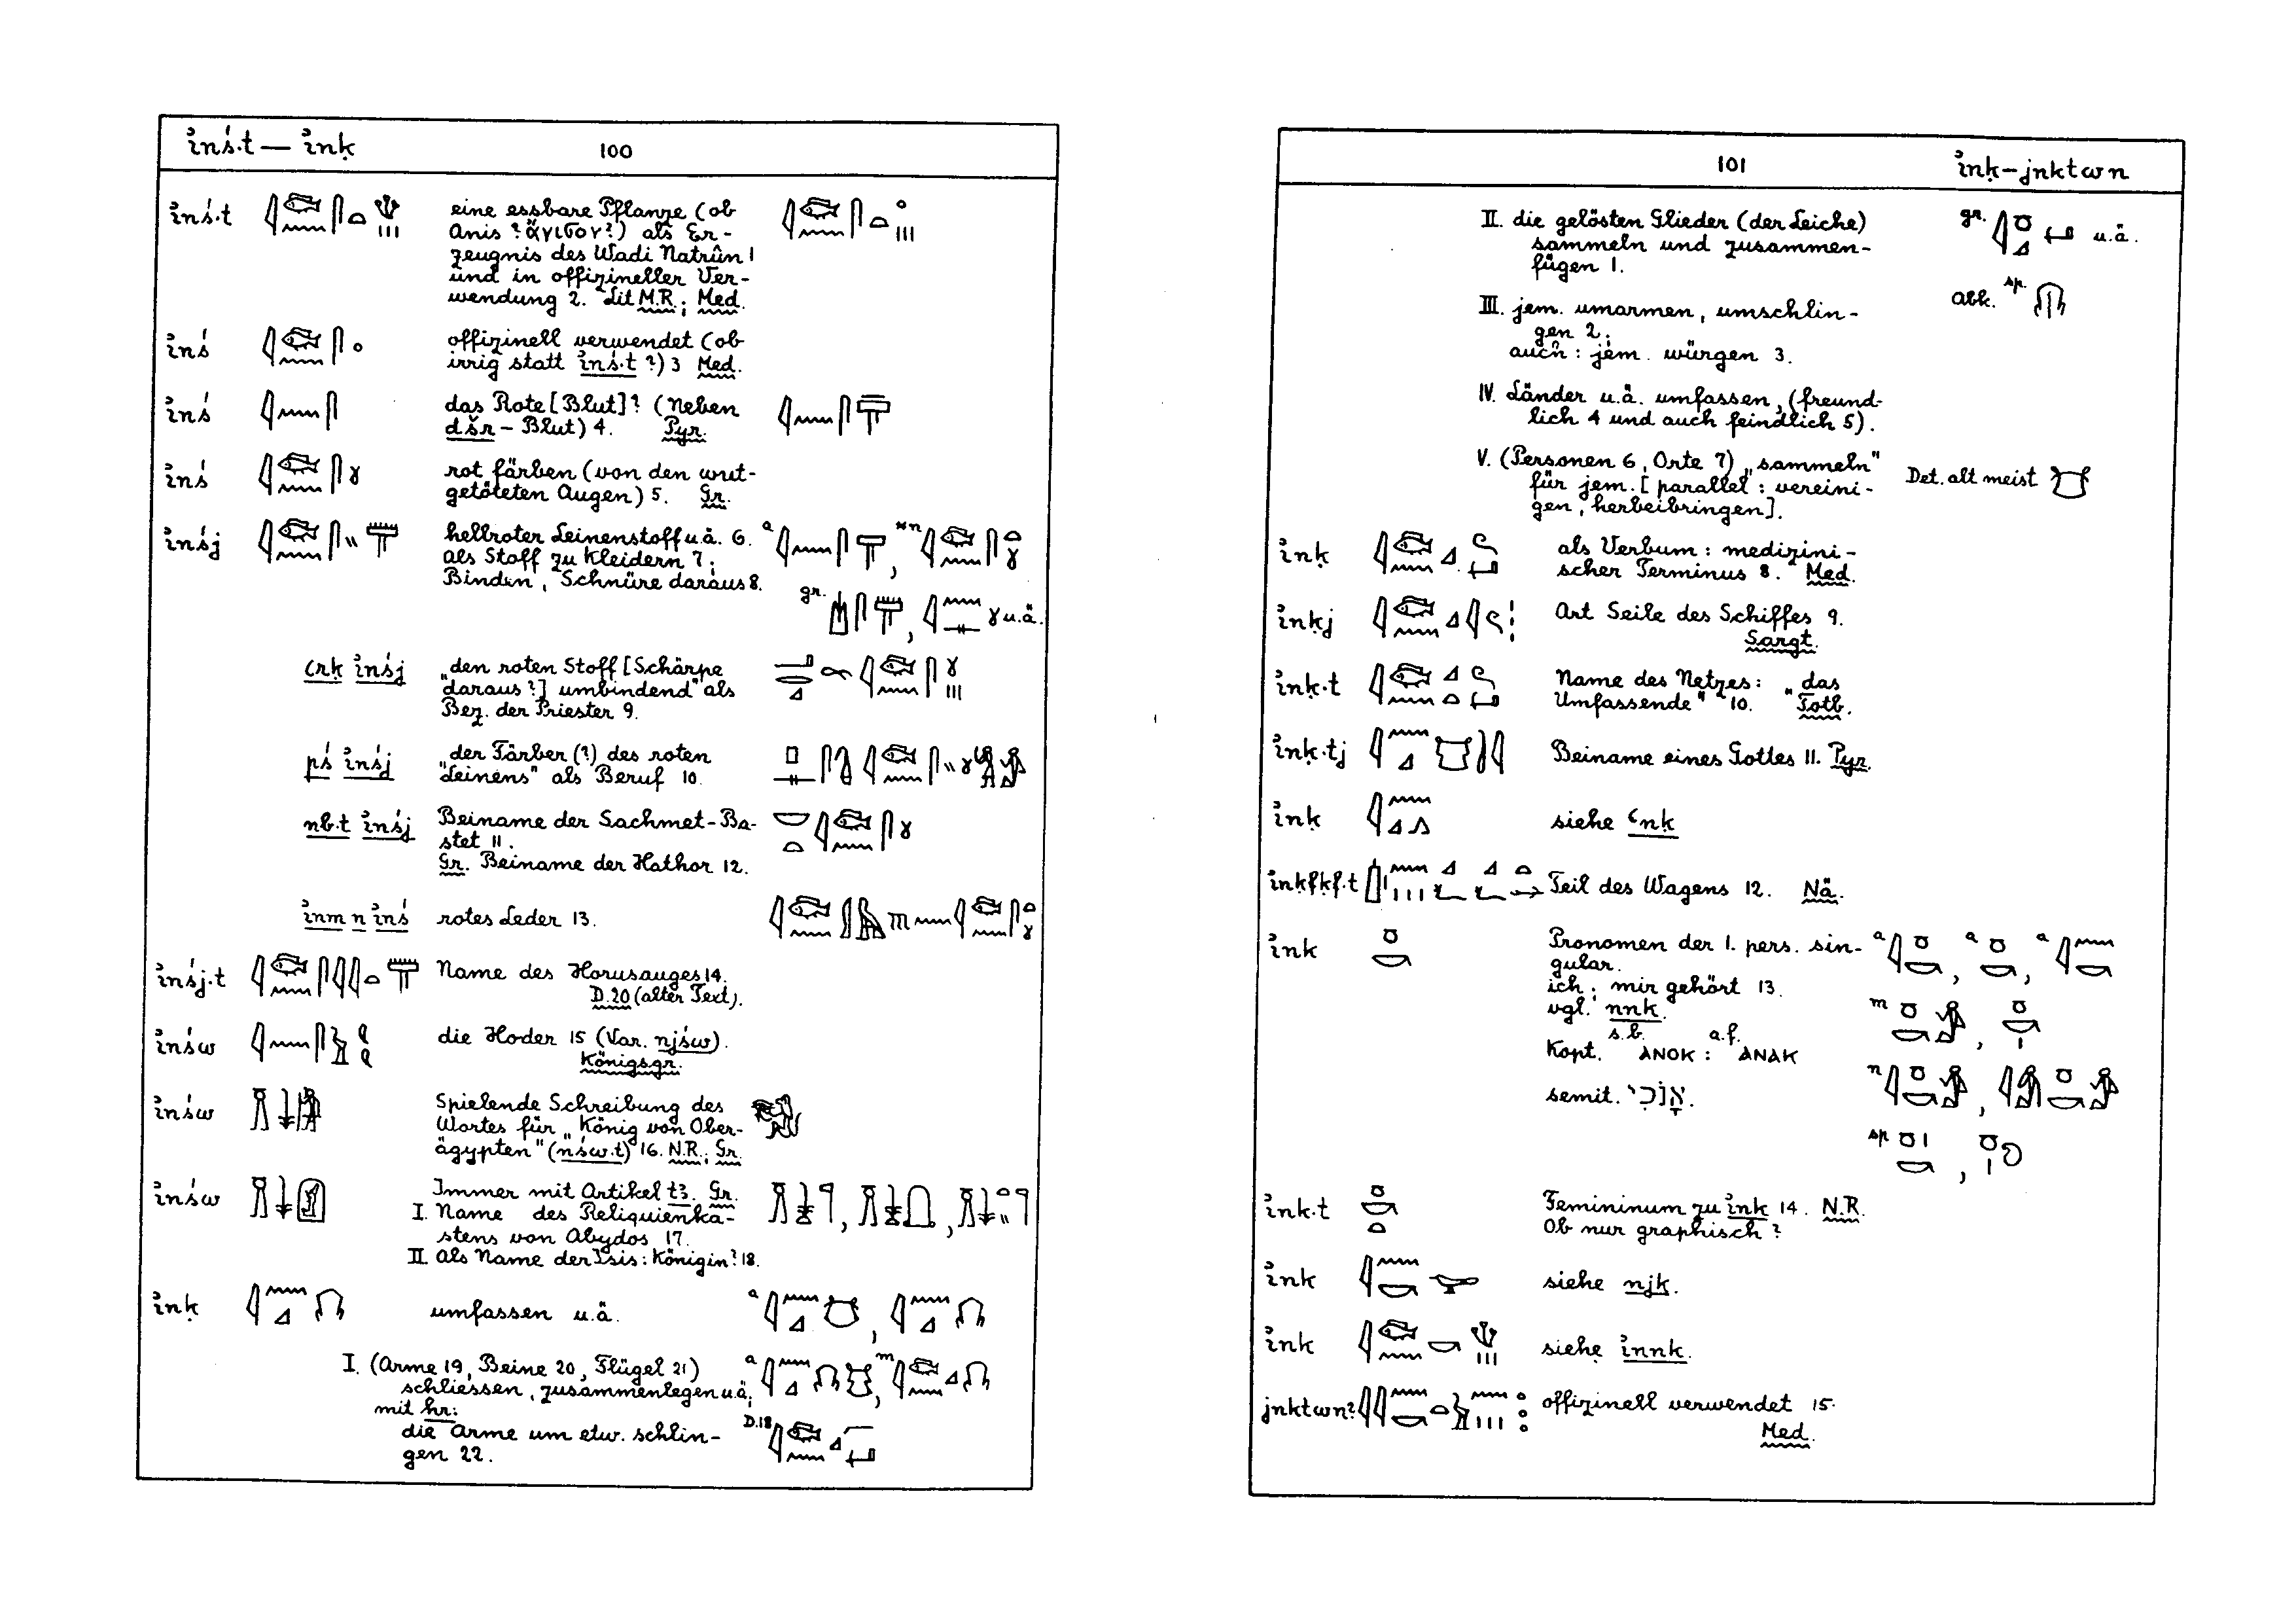 ỉnś·t — ỉnḳ
100
ỉnś·t
eine essbare Pflanze (ob
Anis? ἄνισον?) als Er-
zeugnis des Wadi Natrûn 1
und in offizineller Ver-
wendung 2. Lit M.R.; Med.
ỉnś
offizinell verwendet (ob
irrig statt ỉnś·t ?) 3 Med.
ỉnś
das Rote [Blut]? (neben
dšr – Blut) 4. Pyr.
ỉnś
rot färben (von den wut-
getöteten Augen) 5. Gr.
ỉnśj
hellroter Leinenstoff u.ä. 6.
als Stoff zu Kleidern 7;
Binden, Schnüre daraus 8.
a , nn
gr. , u.ä.
ꜥrḳ ỉnśj
„den roten Stoff [Schärpe
daraus?] umbindend" als
Bez. der Priester 9.
pś ỉnśj
„der Färber (?) des roten
Leinens" als Beruf 10.
nb·t ỉnśj
Beiname der Sachmet-Ba-
stet 11.
Gr. Beiname der Hathor 12.
ỉnm n ỉnś
rotes Leder 13.
ỉnśj·t
Name des Horusauges 14.
D. 20 (alter Text).
ỉnśw
die Hoden 15 (Var. njśw).
Königsgr.
ỉnśw
Spielende Schreibung des
Wortes für „König von Ober-
ägypten" (nśw·t) 16. N.R.; Gr.
ỉnśw
Immer mit Artikel tꜣ. Gr.
I. Name des Reliquienka-
stens von Abydos 17.
II. als Name der Isis: Königin? 18.
ỉnḳ
umfassen u.ä.
a ,
I. (Arme 19, Beine 20, Flügel 21)
schliessen, zusammenlegen u.ä;
a , m
mit ḥr:
die Arme um etw. schlin-
gen 22.
D. 18
101
ỉnḳ – jnktwn
II. die gelösten Glieder (der Leiche)
sammeln und zusammen-
fügen 1.
gr. u.ä.
abk. sp.
III. jem. umarmen, umschlin-
gen 2;
auch: jem. würgen 3.
IV. Länder u.ä. umfassen, (freund-
lich 4 und auch feindlich 5).
V. (Personen 6, Orte 7) „sammeln"
für jem. [parallel: vereini-
gen, herbeibringen].
Det. alt meist
ỉnḳ
als Verbum: medizini-
scher Terminus 8. Med.
ỉnḳj
Art Seile des Schiffes 9.
Sargt.
ỉnḳ·t
Name des Netzes: „das
Umfassende" 10. Totb.
ỉnḳ·tj
Beiname eines Gottes 11. Pyr.
ỉnḳ
siehe ꜥnḳ
ỉnḳfḳf·t
Teil des Wagens 12. Nä.
ỉnk
Pronomen der 1. pers. sin-
gular.
ich; mir gehört 13.
vgl. nnk.
s.b. a.f.
Kopt. ⲁⲛⲟⲕ : ⲁⲛⲁⲕ
semit. אָנֹכִי.
a , a , a
m ,
n ,
sp ,
ỉnk·t
Femininum zu ỉnk 14. N.R.
Ob nur graphisch?
ỉnk
siehe njk.
ỉnk
siehe ỉnnk.
jnktwn?
offizinell verwendet 15.
Med.